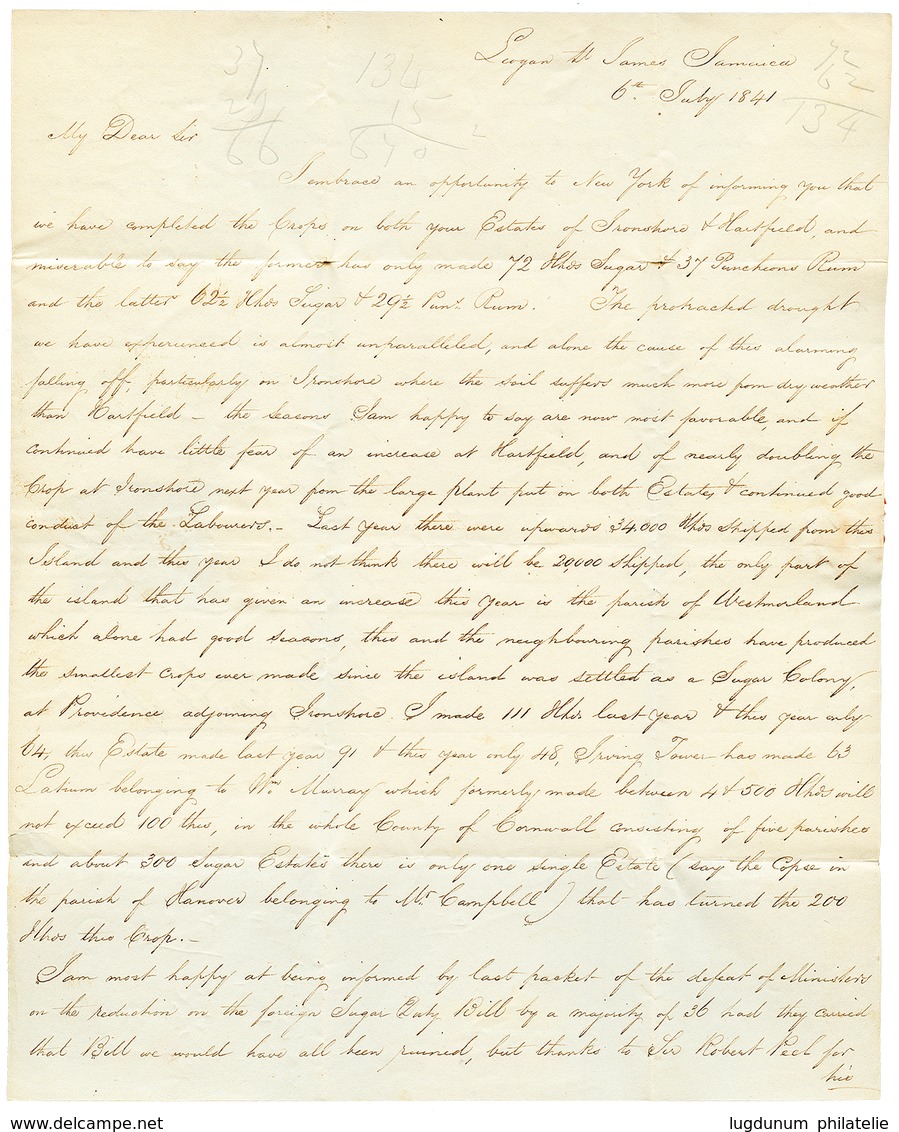 Leogan St James Jamaica
6th July 1841
37
29
66
134
15
670
2
72
62
134
My Dear Sir
I embrace an opportunity to New York of informing you that
we have completed the Crops on both your Estates of Ironshore & Hartfield, and
miserable to say the former has only made 72 Hhds Sugar & 37 Puncheons Rum
and the latter 62½ Hhds Sugar & 29½ Puns. Rum. The protracted drought
we have experienced is almost unparalleled, and alone the cause of this alarming
falling off particularly on Ironshore where the soil suffers much more from dry weather
than Hartfield – the seasons I am happy to say are now most favorable, and if
continued have little fear of an increase at Hartfield, and of nearly doubling the
Crop at Ironshore next year from the large plant put on both Estates, & continued good
conduct of the Labourers. – Last year there were upwards 34.000 Hhds shipped from this
Island and this year I do not think there will be 20,000 shipped, the only part of
the island that has given an increase this year is the parish of Westmorland
which alone had good seasons, this and the neighbouring parishes have produced
the smallest crops ever made since the island was settled as a Sugar Colony,
at Providence adjoining Ironshore I made 111 Hhds last year & this year only
64, this Estate made last year 91 & this year only 48, Irving Tower has made 63
Latium belonging to Wm Murray which formerly made between 4 & 500 Hhds will
not exceed 100 this, in the whole County of Cornwall consisting of five parishes
and about 300 Sugar Estates there is only one single Estate (say the Copse in
the parish of Hanover belonging to Mr. Campbell) that has turned the 200
Hhds this Crop. –
I am most happy at being informed by last packet of the defeat of Ministers
on the reduction on the foreign Sugar Duty Bill by a majority of 36 had they carried
that Bill we would have all been ruined, but thanks to Sir Robert Peel for
his
www.delcampe.net
lugdunum philatelie